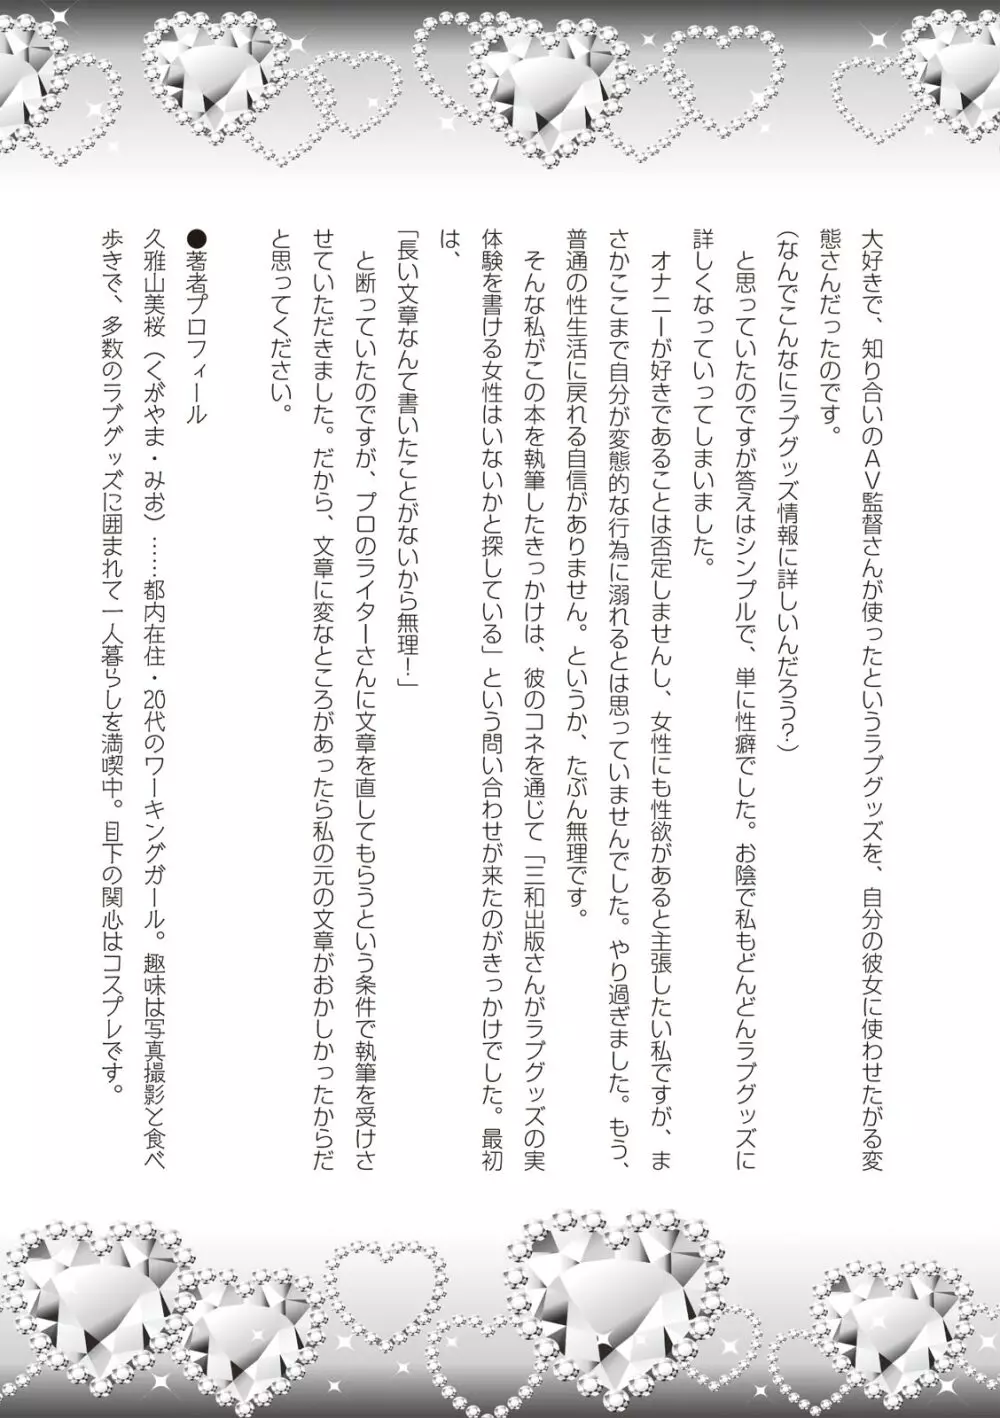 大好きで、知り合いのＡＶ監督さんが使ったというラブグッズを、自分の彼女に使わせたがる変
態さんだったのです。
（なんでこんなにラブグッズ情報に詳しいんだろう？）
と思っていたのですが答えはシンプルで、単に性癖でした。お陰で私もどんどんラブグッズに
詳しくなっていってしまいました。
オナニーが好きであることは否定しませんし、女性にも性欲があると主張したい私ですが、ま
さかここまで自分が変態的な行為に溺れるとは思っていませんでした。やり過ぎました。もう、
普通の性生活に戻れる自信がありません。というか、たぶん無理です。
そんな私がこの本を執筆したきっかけは、彼のコネを通じて「三和出版さんがラブグッズの実
体験を書ける女性はいないかと探している」という問い合わせが来たのがきっかけでした。最初
は、
「長い文章なんて書いたことがないから無理！」
と断っていたのですが、プロのライターさんに文章を直してもらうという条件で執筆を受けさ
せていただきました。だから、文章に変なところがあったら私の元の文章がおかしかったからだ
と思ってください。
●著者プロフィール
久雅山美桜（くがやま・みお）……都内在住・20代のワーキングガール。趣味は写真撮影と食べ
歩きで、多数のラブグッズに囲まれて一人暮らしを満喫中。目下の関心はコスプレです。